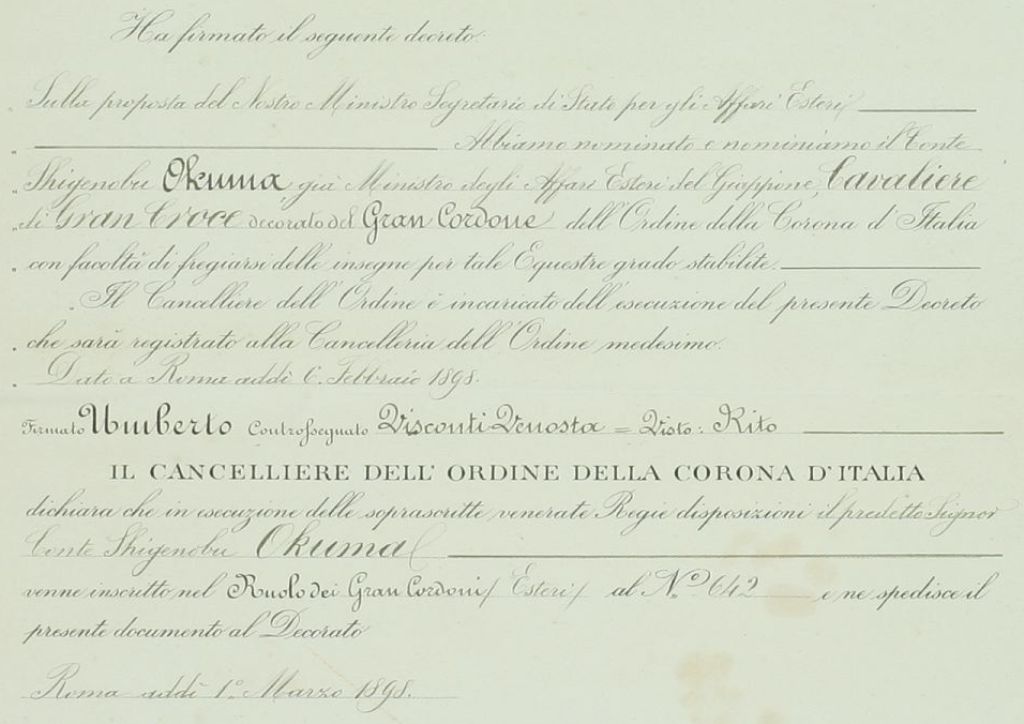 Ha firmato il seguente decreto:
Sulla proposta del Nostro Ministro Segretario di Stato per gli Affari Esteri
Abbiamo nominato e nominiamo il Conte
Shigenobu Okuma, già Ministro degli Affari Esteri del Giappone, Cavaliere
di Gran Croce decorato del Gran Cordone dell' Ordine della Corona d' Italia
con facoltà di fregiarsi delle insegne per tale Equestre grado stabilite.
Il Cancelliere dell' Ordine è incaricato dell' esecuzione del presente Decreto
che sarà registrato alla Cancelleria dell' Ordine medesimo.
Dato a Roma addì 6. Febbraio 1898.
Firmato Umberto Controssegnato Visconti Venosta = Visto: Rito
IL CANCELLIERE DELL' ORDINE DELLA CORONA D'ITALIA
dichiara che in esecuzione delle soprascritte venerate Regie disposizioni il predetto Signor
Conte Shigenobu Okuma
venne inscritto nel Ruolo dei Gran Cordoni (Esteri) al N.º 642 e ne spedisce il
presente documento al Decorato
Roma addì 1.º Marzo 1898.